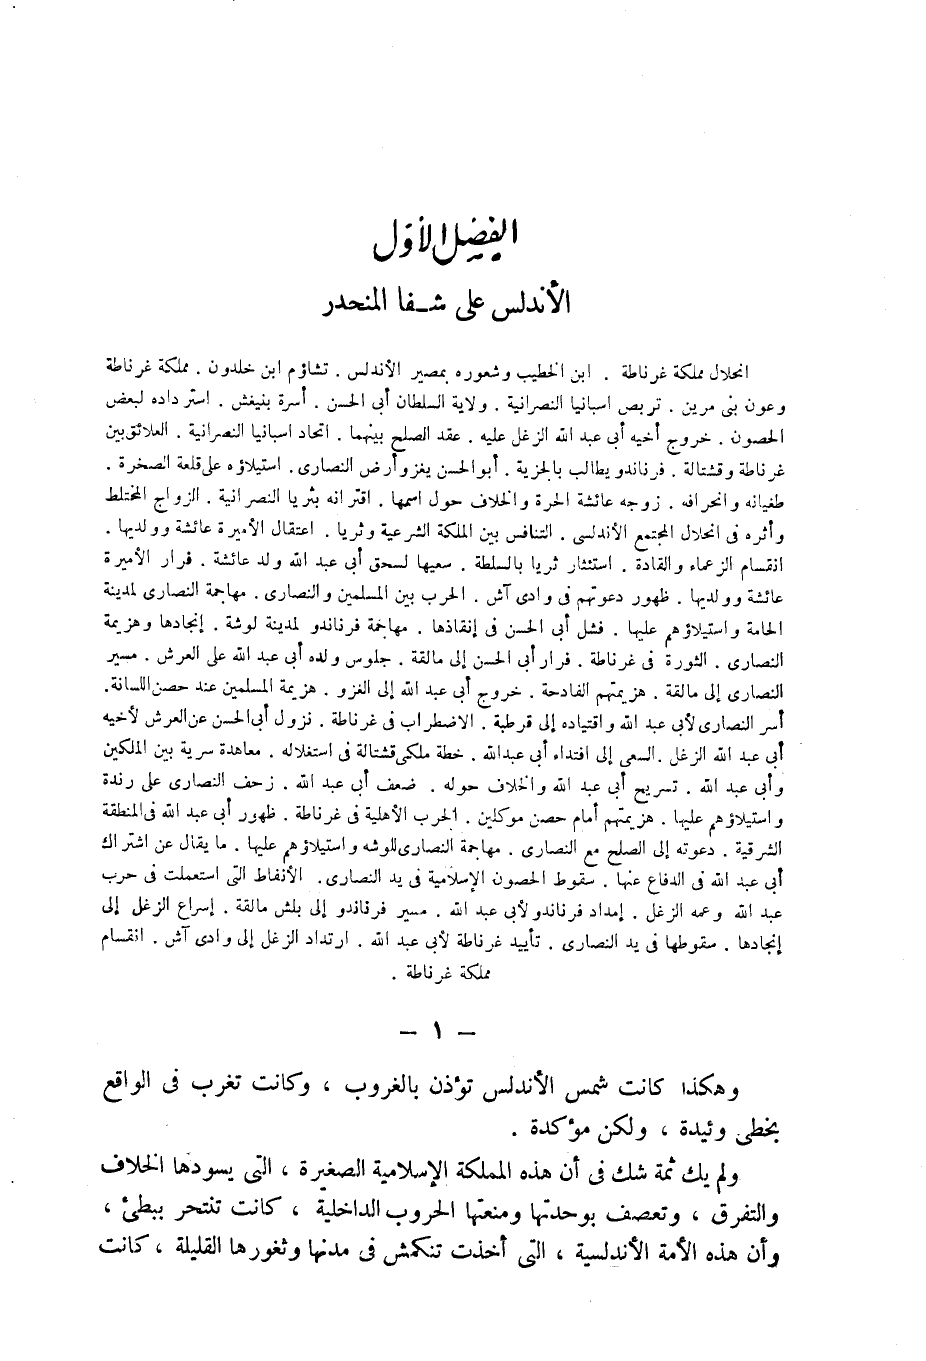 الفصل الأول
الأندلس على شفا المنحدر
انحلال مملكة غرناطة . ابن الخطيب وشعوره بمصير الأندلس . تشاؤم ابن خلدون . مملكة غرناطة
وعون بنى مرين . تربص اسبانيا النصرانية . ولاية السلطان أبى الحسن . أسرة بنيغش . استرداده لبعض
الحصون . خروج أخيه أبى عبد الله الزغل عليه . عقد الصلح بينهما . اتحاد اسبانيا النصرانية . العلائق بين
غرناطة وقشتالة . فرناندو يطالب بالجزية . أبو الحسن يغزو أرض النصارى . استيلاؤه على قلعة الصخرة .
طغيانه وانحرافه . زوجه عائشة الحرة والخلاف حول اسمها . اقترانه بثريا النصرانية . الزواج المختلط
وأثره فى انحلال المجتمع الأندلسى . التنافس بين الملكة الشرعية وثريا . اعتقال الأميرة عائشة وولديها .
انقسام الزعماء والقادة . استئثار ثريا بالسلطة . سعيها لسحق أبى عبد الله ولد عائشة . فرار الأميرة
عائشة وولديها . ظهور دعوتهم فى وادى آش . الحرب بين المسلمين والنصارى . مهاجمة النصارى لمدينة
الحامة واستيلاؤهم عليها . فشل أبى الحسن فى إنقاذها . مهاجمة فرناندو لمدينة لوشة . إنجادها وهزيمة
النصارى . الثورة فى غرناطة . فرار أبى الحسن إلى مالقة . جلوس ولده أبى عبد الله على العرش . مسير
النصارى إلى مالقة . هزيمتهم الفادحة . خروج أبى عبد الله إلى الغزو . هزيمة المسلمين عند حصن اللسانة .
أسر النصارى لأبى عبد الله واقتياده إلى قرطبة . الاضطراب فى غرناطة . نزول أبى الحسن عن العرش لأخيه
أبى عبد الله الزغل . السعى إلى افتداء أبى عبدالله . خطة ملكى قشتالة فى استغلاله . معاهدة سرية بين الملكين
وأبى عبد الله . تسريح أبى عبد الله والخلاف حوله . ضعف أبى عبد الله . زحف النصارى على رندة
واستيلاؤهم عليها . هزيمتهم أمام حصن موكلين . الحرب الأهلية فى غرناطة . ظهور أبى عبد الله فى المنطقة
الشرقية . دعوته إلى الصلح مع النصارى . مهاجمة النصارى للوشه واستيلاؤهم عليها . ما يقال عن اشتراك
أبى عبد الله فى الدفاع عنها . سقوط الحصون الإسلامية فى يد النصارى . الأنفاط التى استعملت فى حرب
عبد الله وعمه الزغل . إمداد فرناندو لأبى عبد الله . مسير فرناندو إلى بلش مالقة . إسراع الزغل إلى
إنجادها . سقوطها فى يد النصارى . تأييد غرناطة لأبى عبد الله . ارتداد الزغل إلى وادى آش . انقسام
مملكة غرناطة .
– ١ –
وهكذا كانت شمس الأندلس تؤذن بالغروب ، وكانت تغرب فى الواقع
بخطى وئيدة ، ولكن مؤكدة .
ولم يك ثمة شك فى أن هذه المملكة الإسلامية الصغيرة ، التى يسودها الخلاف
والتفرق ، وتعصف بوحدتها ومنعتها الحروب الداخلية ، كانت تنتحر ببطئ ،
وأن هذه الأمة الأندلسية ، التى أخذت تنكمش فى مدنها وثغورها القليلة ، كانت